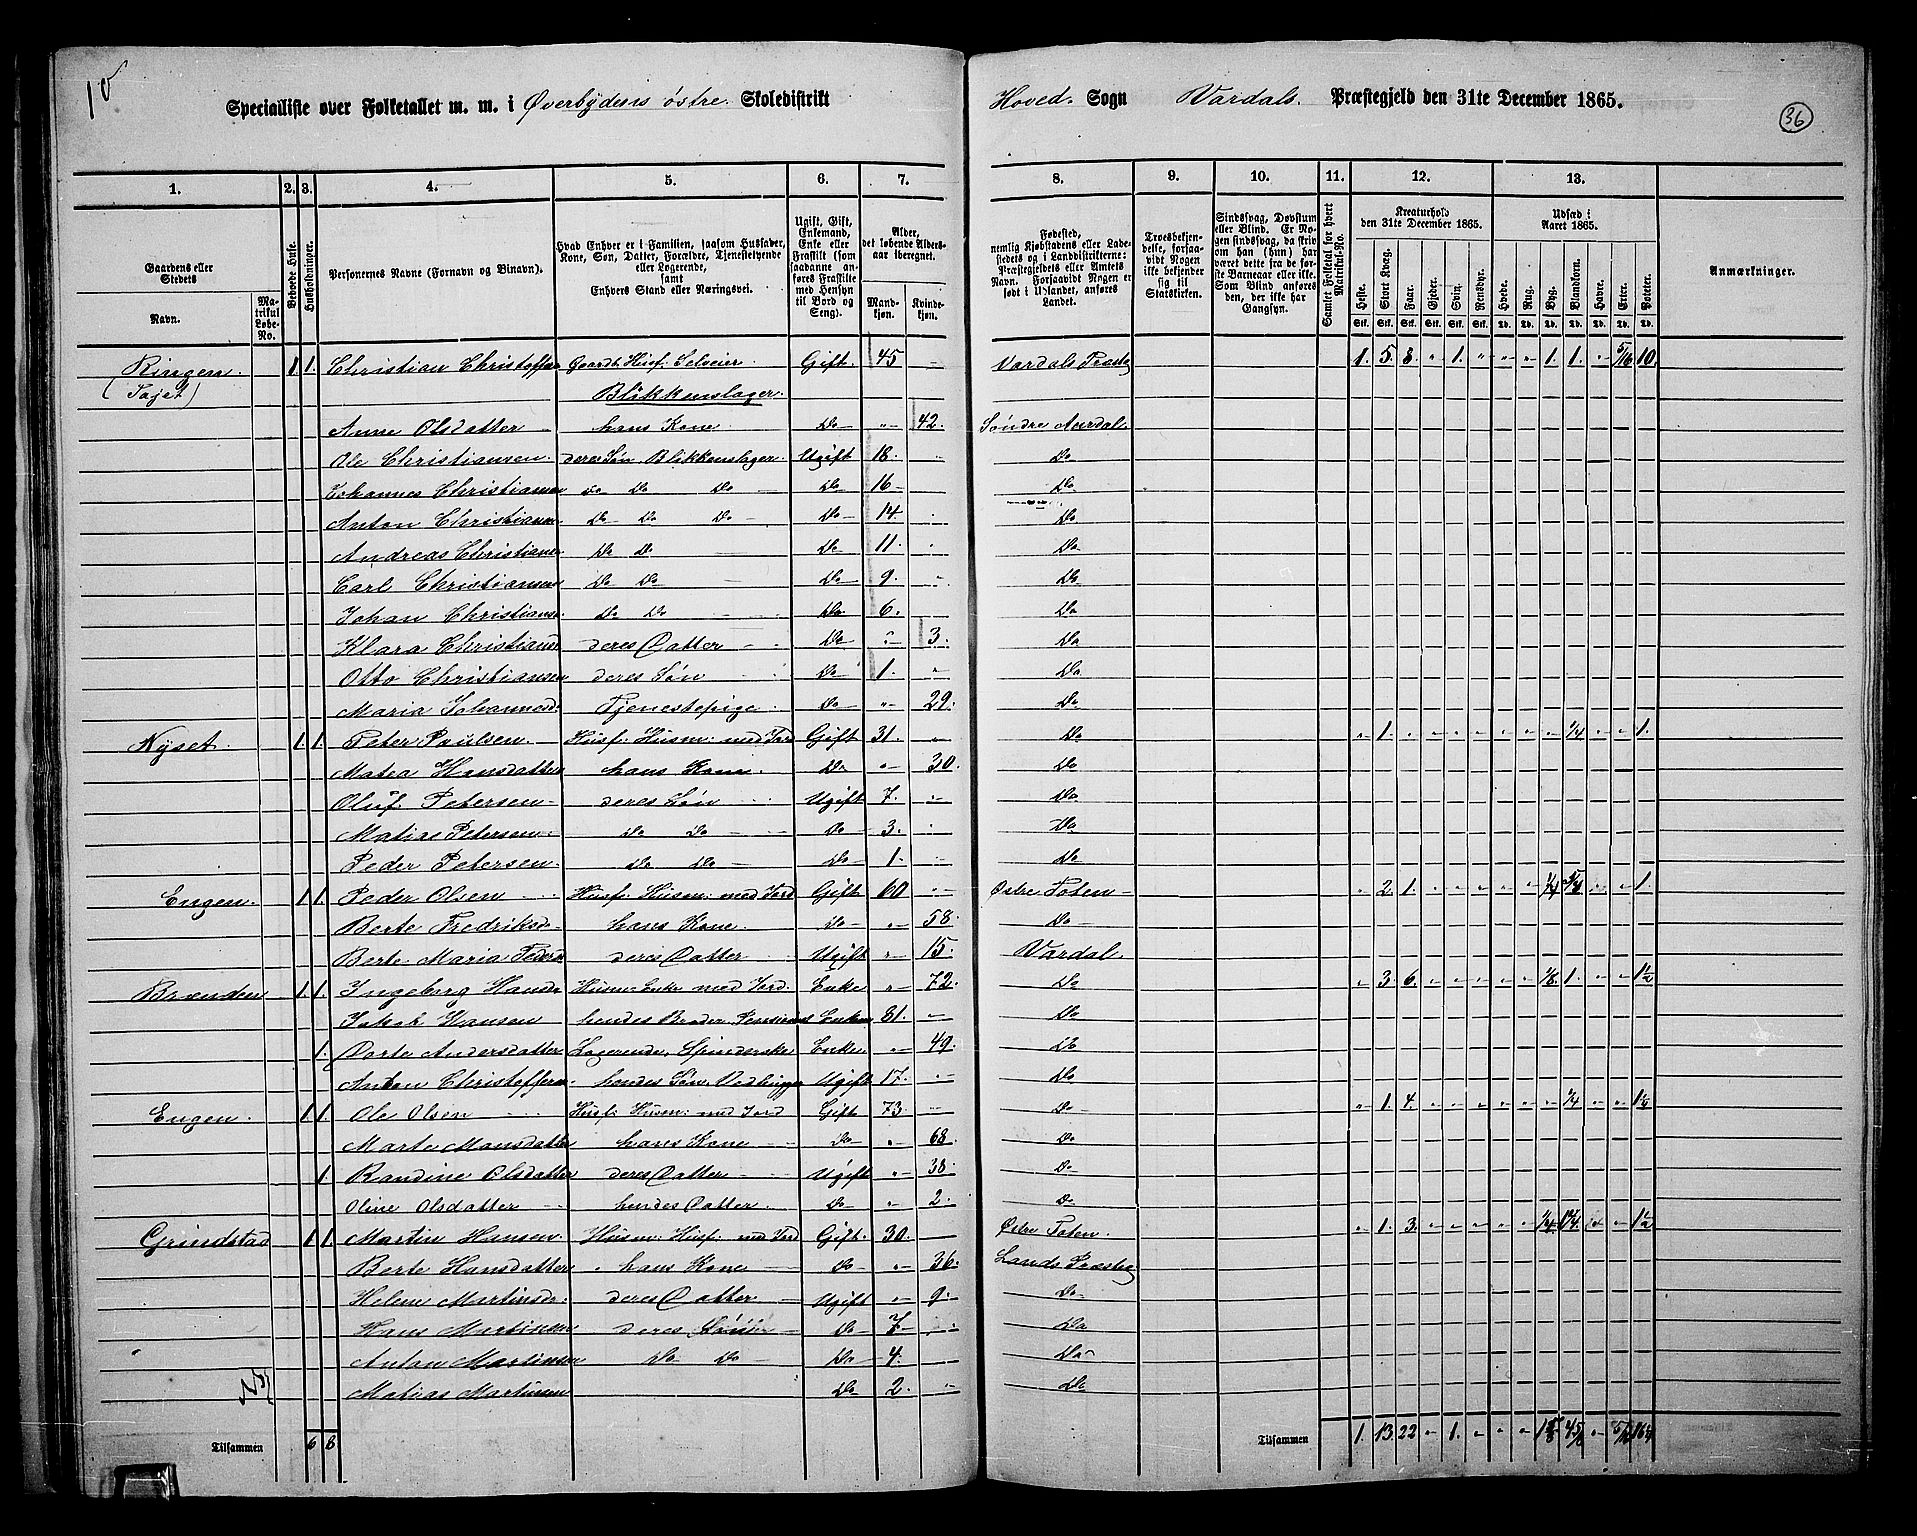 10
Specialliste over Folketallet m. m. i Øverbydens østre Skoledistrikt
Hoved Sogn Vardals Præstegjeld den 31te December 1865.
36
1. 2. 3. 4. 5. 6. 7. 8. 9. 10. 11. 12. 13.
Gaardens eller Stedets
Navn.
Matrikul Løbe-No.
Beboede Huse.
Husholdninger.
Personernes Navne (Fornavn og Binavn).
Hvad Enhver er i Familien, saasom Husfader, Kone, Søn, Datter, Forældre, Tjenestetyende eller Logerende, samt Enhvers Stand eller Næringsvei.
Ugift, Gift, Enkemand, Enke eller Fraskilt (som saadanne anføres Fraskilte med Hensyn til Bord og Seng).
Alder, det løbende Aldersaar iberegnet.
Mandkjøn. Kvindekjøn.
Fødested, nemlig Kjøbstadens eller Ladestedets og i Landdistrikterne: Præstegjeldets eller Amtets Navn. Forsaavidt Nogen er født i Udlandet, anføres Landet.
Troesbekjendelse, forsaavidt Nogen ikke bekjender sig til Statskirken.
Sindssvag, Døvstum eller Blind. Er Nogen sindssvag, da skriv om han (hun) har været dette fra de første Barneaar eller ikke. Som Blind anføres den, der ikke har Gangsyn.
Samlet Folketal for hvert Matrikul-No.
Kreaturhold den 31te December 1865.
Heste. Stort Kvæg. Faar. Gjeder. Sviin. Rensdyr.
Udsæd i Aaret 1865.
Hvede. Rug. Byg. Blandkorn. Havre. Erter. Poteter.
Anmærkninger.
Ringen 1. 1. Christian Christoffer Gaardb. Husf. Selveier Gift. 45 Vardals Præstg 1. 5. 8. „ 1. „ „ „ 1. 1. „ 5/16 10.
(Tajet) Blikkenslager.
Anne Olsdatter hans Kone Do „ 42. Søndre Aurdal
Ole Christiansen deres Søn, Blikkenslager Ugift 18. Do
Johannes Christianse do Do Do Do 16 Do
Anton Christianse Do Do Do Do 14. Do
Andreas Christianse Do Do Do 11. Do
Carl Christianse Do Do Do 9. Do
Johan Christianse Do Do Do 6. Do
Klara Christiansd deres Datter Do „ 3. Do
Otto Christiansen deres Søn Do 1. Do
Maria Johannesd. Tjenestepige Do „ 29. Do
Nyset 1. 1. Peter Paulsen Husf. Husm. med Jord Gift 31. Do „ 1. „ „ „ „ „ „ „ 1/4 „ „ 1.
Matea Hansdatter hans Kone Do „ 30. Do
Oluf Petersen deres Søn Ugift 7. Do
Matias Petersen Do Do Do 3. Do
Peder Petersen Do Do Do 1. Do
Engen 1. 1. Peder Olsen Husf. Husm. med Jord Gift 60 Østre Toten „ 2. 1. „ „ „ „ „ 1/4 3/4 „ „ 1.
Berte Fredriksd. hans Kone Do „ 58. Do
Berte Maria Pedersd deres Datter Ugift „ 15. Vardal
Brænden 1. 1. Ingeborg Hansd Husm. Enke med Jord. Enke „ 72. Do „ 3. 6. „ „ „ „ „ 1/8. 1. „ „ 1 1/2
Jakob Hansen hendes Broder Enkem 81. Do
1. Dorte Andersdatter Logerende, Spinderske Enke „ 49. Do
Anton Christoffers. hendes Søn, Vedhugger Ugift 17. Do
Engen 1. 1. Ole Olsen Husf. Husm. med Jord Gift 73. Do „ 1. 4. „ „ „ „ „ „ 1/4 „ „ 1 1/2
Marte Monsdatter hans Kone Do „ 68. Do
1. Randine Olsdatter deres Datter Ugift „ 38. Do
Oline Olsdatter hendes Datter Do „ 2. Do
Grindstad 1. 1. Martin Hansen Husm. Husf. med Jord Gift. 30. Østre Toten. „ 1. 3. „ „ „ „ „ 1/4 1 1/4. „ „ 1 1/2
Berte Hansdatter hans Kone Do „ 36. Lands Præsteg
Helene Martinsd. deres Datter Ugift „ 9. Do
Hans Martinsen deres Sønner Do 7 Do
Anton Martinsen Do Do Do 4. Do
Matias Martinsen Do 2. Do
Tilsammen 6 8
Tilsammen 1. 13. 22 „ 1. „ „ „ 1 5/8 4 5/8 „ 5/16 16 1/2